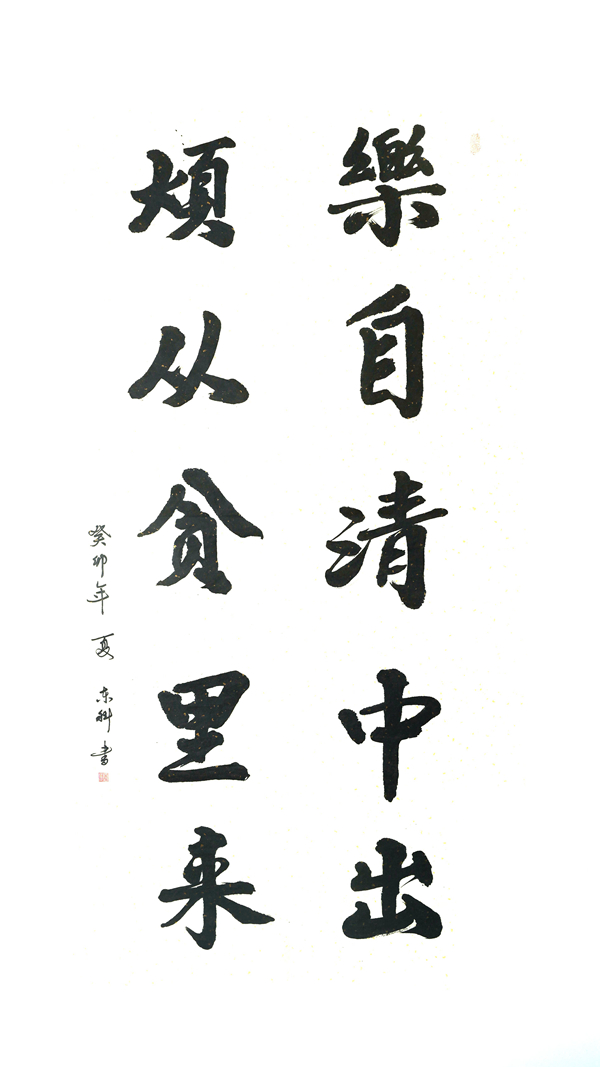 樂自清中出
煩从贪里来
癸卯年 夏 东科 書